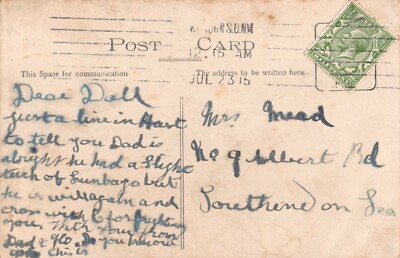 POST CARD
12.15 AM
JUL 23 15
This Space for communication
The address to be written here.
Dear Doll
just a line in Hast
to tell you Dad is
alright he had a slight
tuch of Lumbago but
he is will again and
cross with C for frighting
you with love from
Dad & Flo. Do you
this is
Mrs Mead
No 9 Albert Rd
Southend on Sea